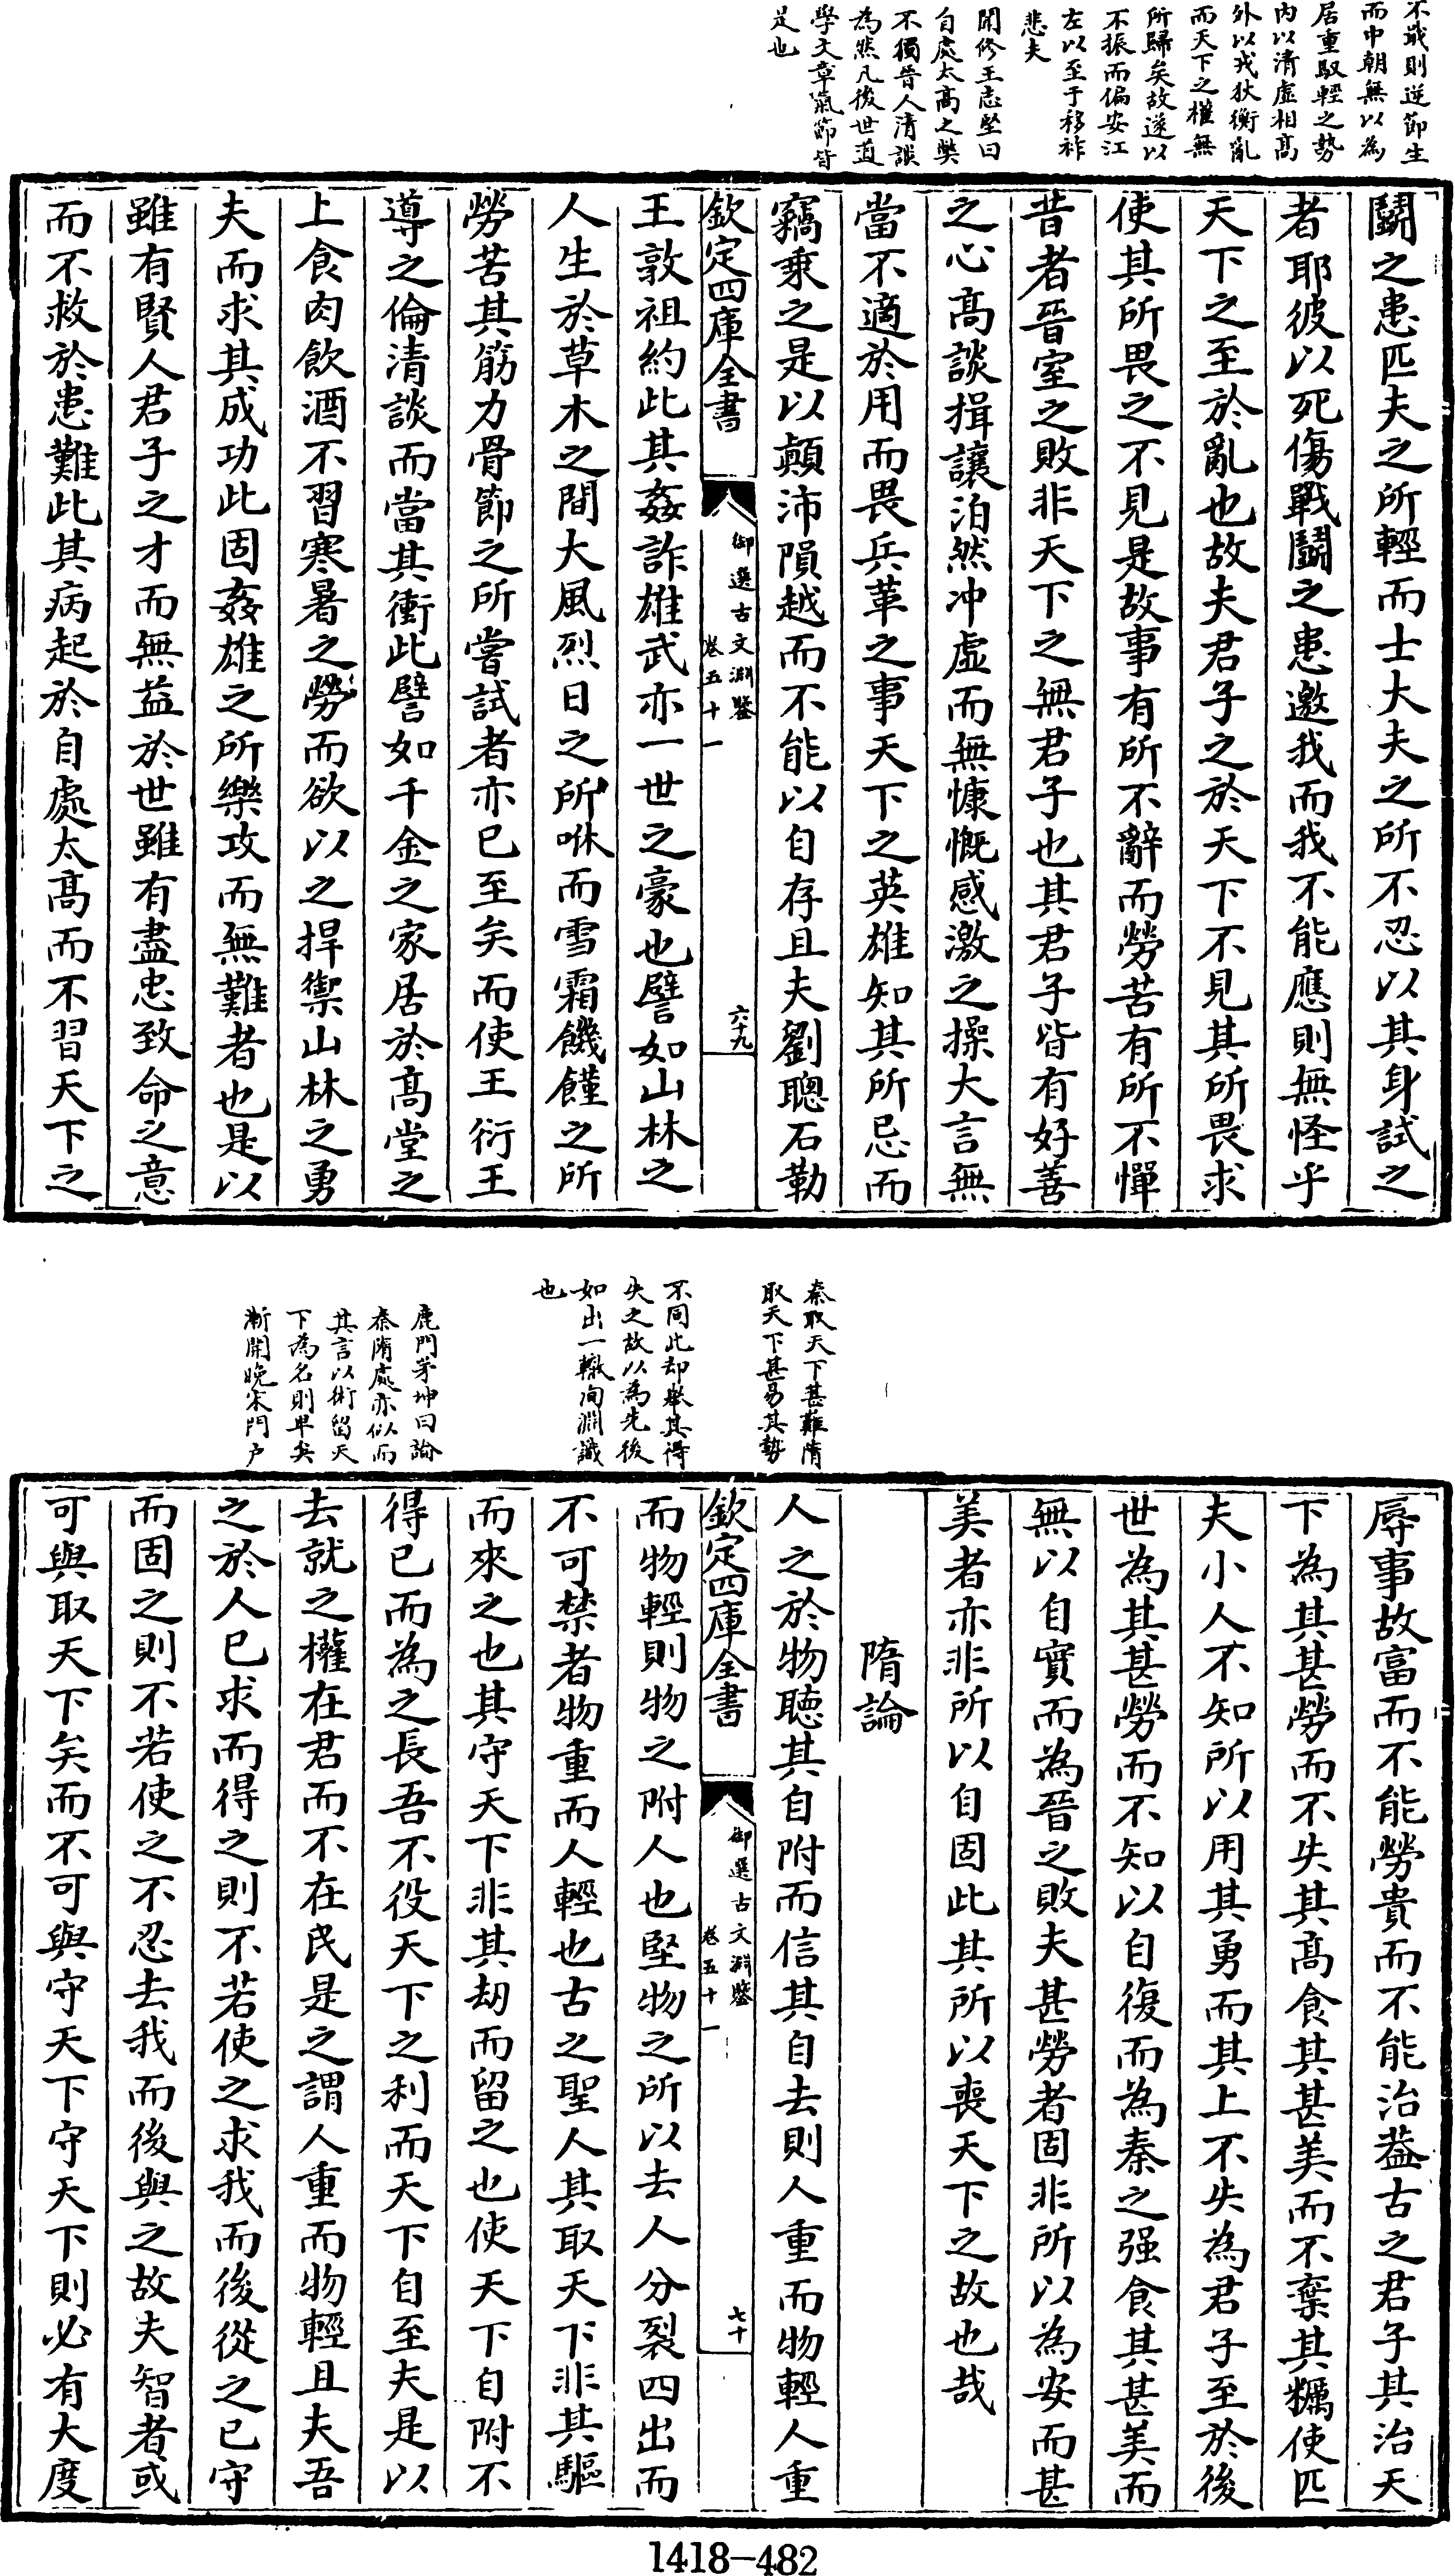 不戢則逆節生
而中朝無以為
居重馭輕之勢
内以清虛相高
外以戎狄衡亂
而天下之權無
所歸矣故遂以
不振而偏安江
左以至于移祚
悲夫
閒修王志堅曰
自處太高之獘
不獨晉人清談
為然凡後世道
學文章氣節皆
是也
鬭之患匹夫之所輕而士大夫之所不忍以其身試之
者耶彼以死傷戰鬭之患邀我而我不能應則無怪乎
天下之至於亂也故夫君子之於天下不見其所畏求
使其所畏之不見是故事有所不辭而勞苦有所不憚
昔者晉室之敗非天下之無君子也其君子皆有好善
之心高談揖讓泊然冲虛而無慷慨感激之操大言無
當不適於用而畏兵革之事天下之英雄知其所忌而
竊乗之是以顛沛隕越而不能以自存且夫劉聰石勒
欽定四庫全書
御選古文淵鑒
卷五十一
六十九
王敦祖約此其姦詐雄武亦一世之豪也譬如山林之
人生於草木之間大風烈日之所咻而雪霜饑饉之所
勞苦其筋力骨節之所嘗試者亦已至矣而使王衍王
導之倫清談而當其衝此譬如千金之家居於高堂之
上食肉飲酒不習寒暑之勞而欲以之捍禦山林之勇
夫而求其成功此固姦雄之所樂攻而無難者也是以
雖有賢人君子之才而無益於世雖有盡忠致命之意
而不救於患難此其病起於自處太高而不習天下之
秦取天下甚難隋
取天下甚易其勢
不同此却舉其得
失之故以為先後
如出一轍洵淵識
也
鹿門茅坤曰論
秦隋處亦似而
其言以術留天
下為名則卑矣
漸開晚宋門户
辱事故富而不能勞貴而不能治葢古之君子其治天
下為其甚勞而不失其高食其甚美而不棄其糲使匹
夫小人不知所以用其勇而其上不失為君子至於後
世為其甚勞而不知以自復而為秦之强食其甚美而
無以自實而為晉之敗夫甚勞者固非所以為安而甚
美者亦非所以自固此其所以喪天下之故也哉
隋論
人之於物聽其自附而信其自去則人重而物輕人重
欽定四庫全書
御選古文淵鑒
卷五十一
七十
而物輕則物之附人也堅物之所以去人分裂四出而
不可禁者物重而人輕也古之聖人其取天下非其驅
而來之也其守天下非其刼而留之也使天下自附不
得已而為之長吾不役天下之利而天下自至夫是以
去就之權在君而不在民是之謂人重而物輕且夫吾
之於人已求而得之則不若使之求我而後從之已守
而固之則不若使之不忍去我而後與之故夫智者或
可與取天下矣而不可與守天下守天下則必有大度
1418-482